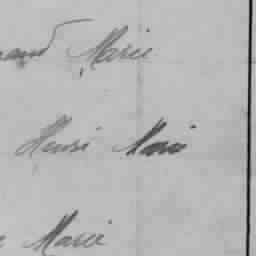 Marie
Henri Marie
Marie